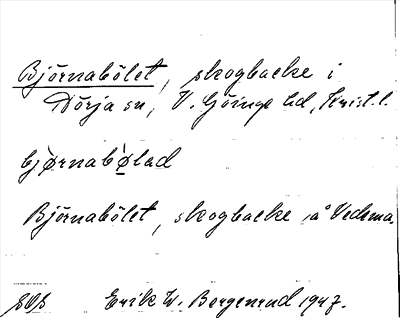 Björnabölet, skogbacke i
Dörja sn, V. Göinge hd, Krist. l.
bjø̀rnabø̣̀lad
Björnabölet, skogbacke å Vedema.
Erik W. Bergenrud 1947.